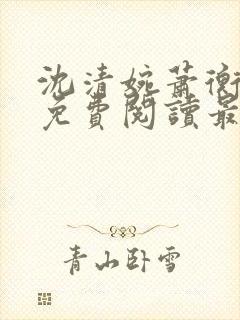 沈清婉蕭衡
免費閱讀最
青山卧雪